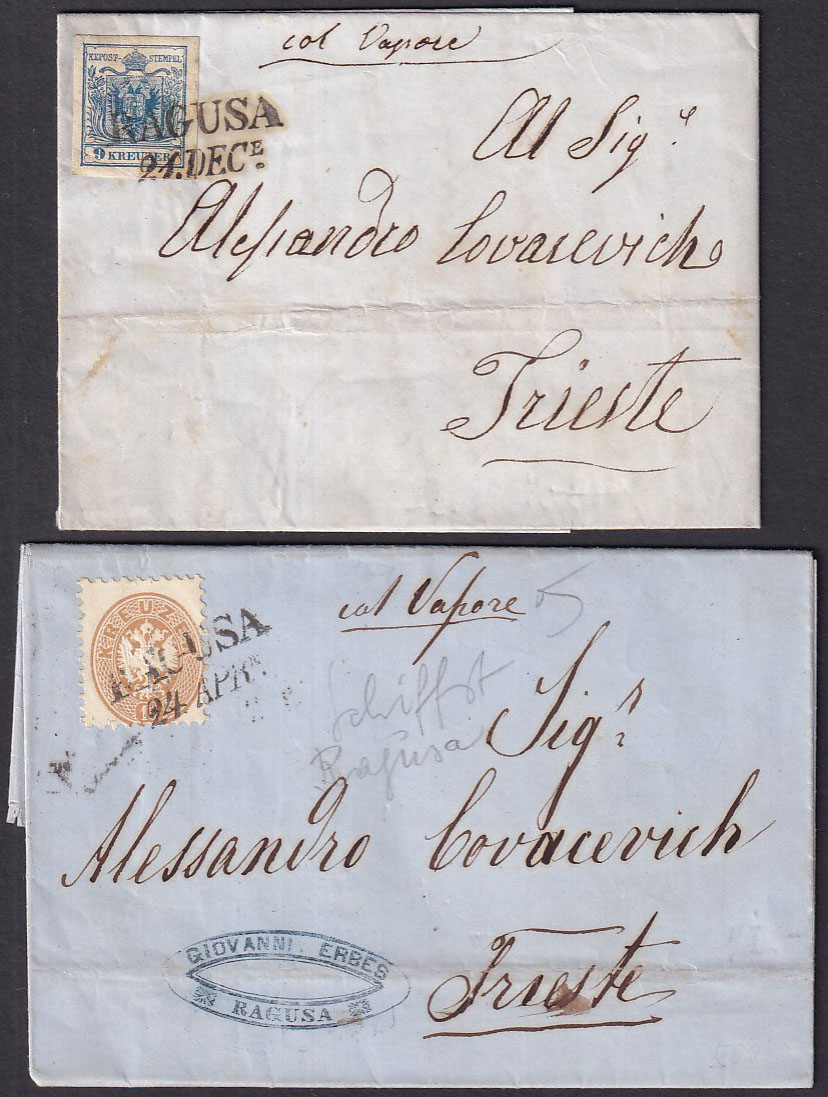 col Vapore
KKPOST-STEMPEL
RAGUSA
9 KREUZER
24.DECE.
Al Sigr.
Alessandro Covacevich
Trieste
col Vapore
5
KREUZ
RAGUSA
24 APR.
Schiffst
Ragusa
Sigr
Alessandro Covacevich
GIOVANNI. ERBES
RAGUSA
Trieste